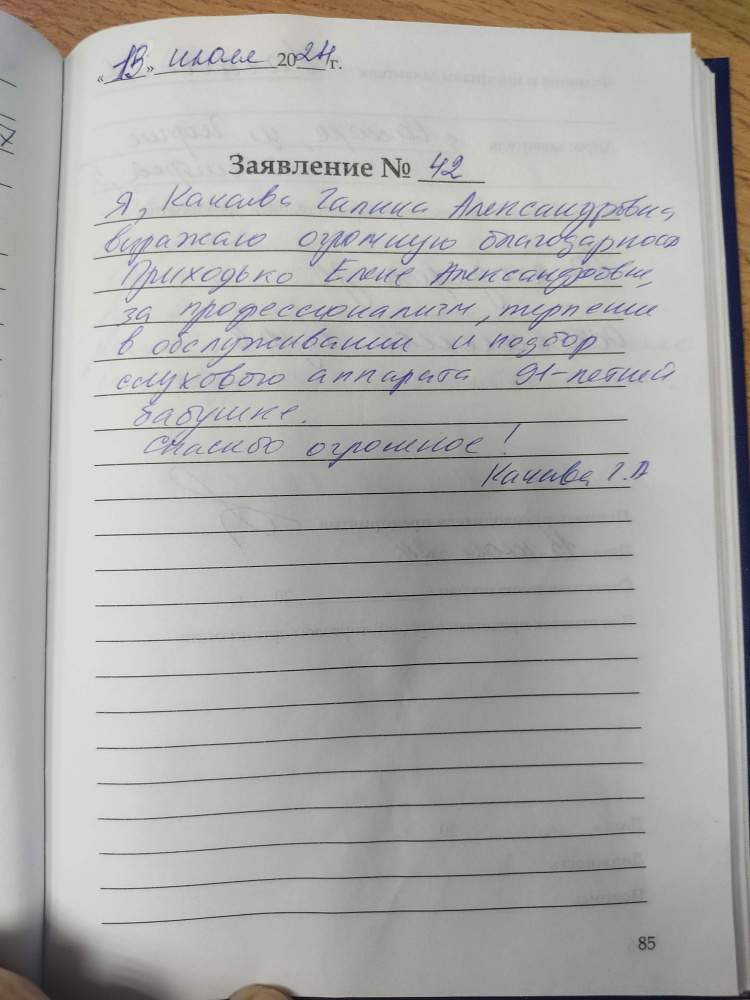 «13» июля 2024 г.
Заявление № 42
Я, Качаева Галина Александровна
выражаю огромную благодарность
Приходько Елене Александровне,
за профессионализм, терпение
в обслуживании и подбор
слухового аппарата 91-летней
бабушке.
Спасибо огромное!
Качаева Г.А
85